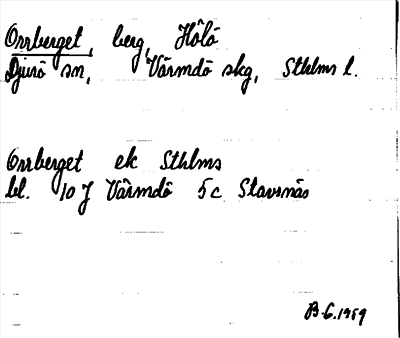 Orrberget, berg, Hölö
Djurö sn, Värmdö skg, Sthlms l.
Orrberget ek Sthlms
bl. 10 J Värmdö 5c Stavsnäs
B.G. 1959